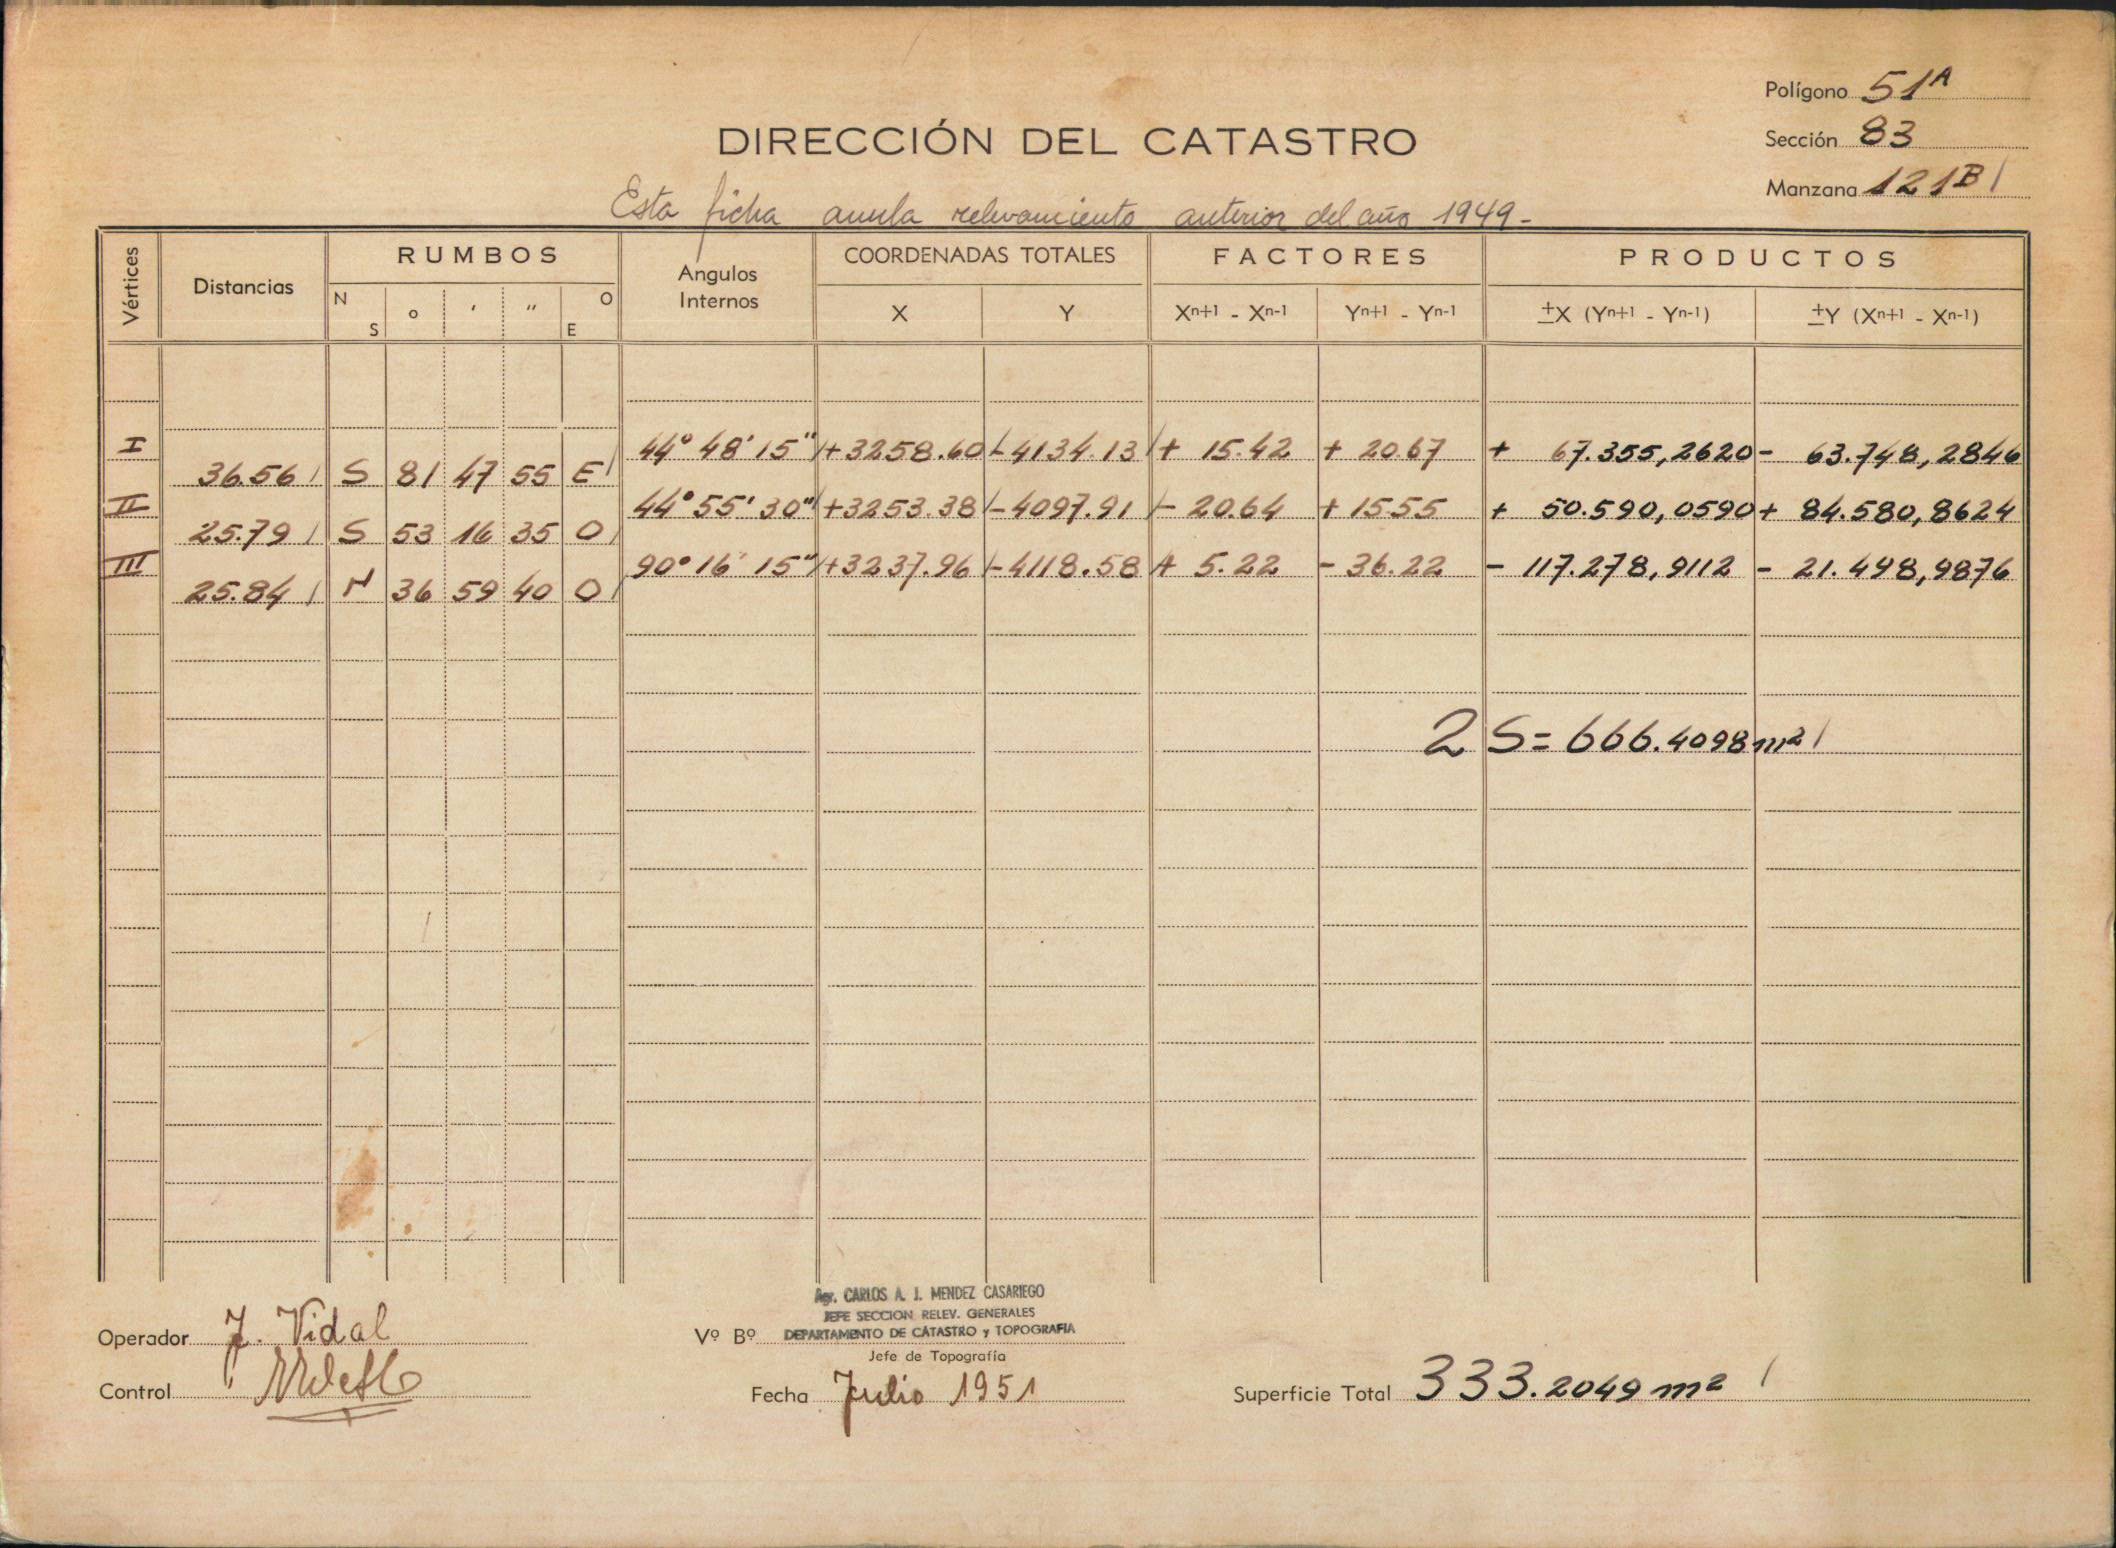 Polígono 51A
DIRECCIÓN DEL CATASTRO
Sección 83
Manzana 121B
Esta ficha anula relevamiento anterior del año 1949-
Vértices Distancias RUMBOS Angulos Internos COORDENADAS TOTALES FACTORES PRODUCTOS
N S o ' " O E X Y Xn+1 - Xn-1 Yn+1 - Yn-1 ±X (Yn+1 - Yn-1) ±Y (Xn+1 - Xn-1)
I 44° 48' 15" +3258.60 -4134.13 + 15.42 + 20.67 + 67.355,2620 - 63.748,2846
36.56 S 81 47 55 E
II 44° 55' 30" +3253.38 -4097.91 - 20.64 + 15.55 + 50.590,0590 + 84.580,8624
25.79 S 53 16 35 O
III 90° 16' 15" +3237.96 -4118.58 + 5.22 - 36.22 - 117.278,9112 - 21.498,9876
25.84 N 36 59 40 O
2 S = 666.4098 m2
Agr. CARLOS A. J. MENDEZ CASARIEGO
JEFE SECCION RELEV. GENERALES
Operador J. Vidal Vº Bº DEPARTAMENTO DE CATASTRO y TOPOGRAFIA
Jefe de Topografía
Control Fecha Julio 1951 Superficie Total 333.2049 m2